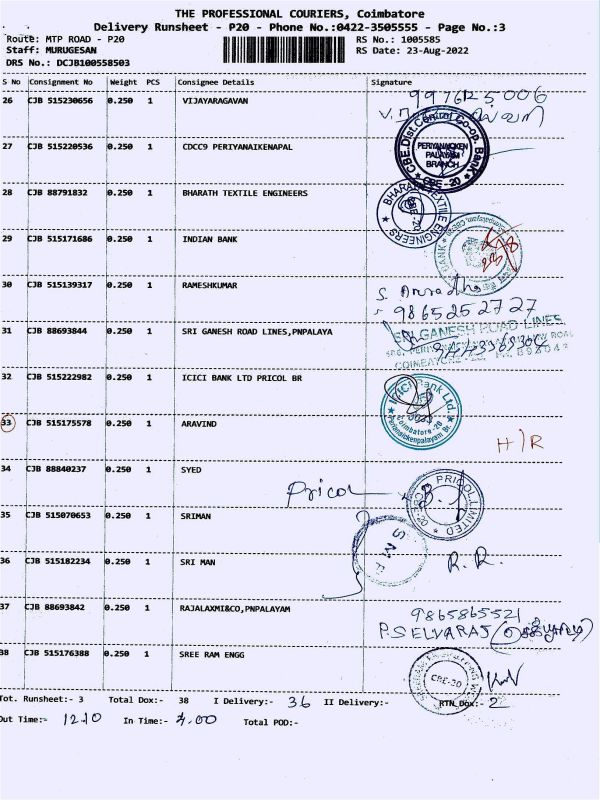 THE PROFESSIONAL COURIERS, Coimbatore
Delivery Runsheet - P20 - Phone No.:0422-3505555 - Page No.:3
Route: MTP ROAD - P20 RS No.: 1005585
Staff: MURUGESAN RS Date: 23-Aug-2022
DRS No.: DCJB100558503
S No Consignment No Weight PCS Consignee Details Signature
26 CJB 515230656 0.250 1 VIJAYARAGAVAN
27 CJB 515220536 0.250 1 CDCC9 PERIYANAIKENAPAL
CBE.Dist.Central Co-op. Bank
PERIYANAICKEN
PALAYAM
BRANCH
CBE-20
28 CJB 88791832 0.250 1 BHARATH TEXTILE ENGINEERS
BHARATH TEXTILE ENGINEERS
29 CJB 515171686 0.250 1 INDIAN BANK
BANK
30 CJB 515139317 0.250 1 RAMESHKUMAR S. Anuradha
9865252727
31 CJB 88693844 0.250 1 SRI GANESH ROAD LINES,PNPALAYA
SRI GANESH ROAD LINES
32 CJB 515222982 0.250 1 ICICI BANK LTD PRICOL BR
ICICI Bank Ltd.
Coimbatore-20
Perianaickenpalayam Br.
33 CJB 515175578 0.250 1 ARAVIND H/R
34 CJB 88840237 0.250 1 SYED
Pricol
PRICOL LIMITED
CBE-20
35 CJB 515070653 0.250 1 SRIMAN
S M F
36 CJB 515182234 0.250 1 SRI MAN R.R.
37 CJB 88693842 0.250 1 RAJALAXMI&CO,PNPALAYAM 9865865521
P.SELVARAJ
38 CJB 515176388 0.250 1 SREE RAM ENGG
CBE-20
Tot. Runsheet:- 3 Total Dox:- 38 I Delivery:- 36 II Delivery:- RTN Dox:- 2
Out Time:- 12.10 In Time:- 4.00 Total POD:-